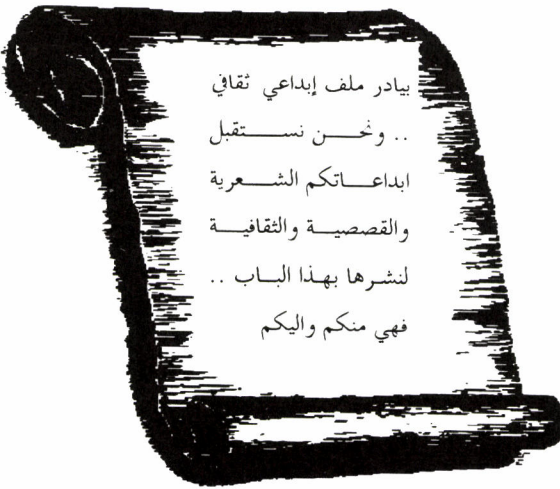 بيادر ملف إبداعي ثقافي
.. ونحن نستقبل
ابداعاتكم الشعرية
والقصصية والثقافية
لنشرها بهذا الباب ..
فهي منكم واليكم